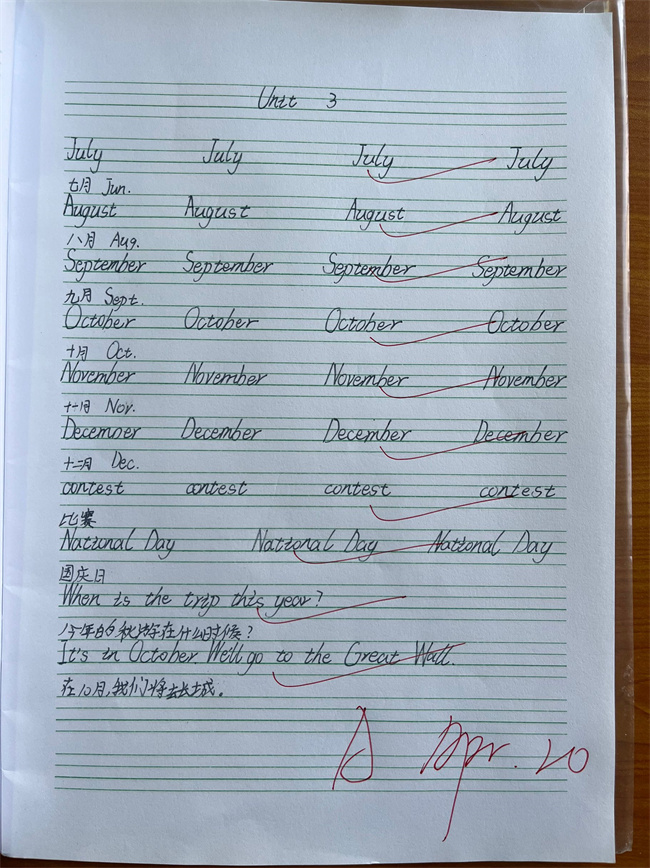 Unit 3
July July July July
七月 Jun.
August August August August
八月 Aug.
September September September September
九月 Sept.
October October October October
十月 Oct.
November November November November
十一月 Nov.
Decemner December December December
十二月 Dec.
contest contest contest contest
比赛
National Day National Day National Day
国庆日
When is the trip this year?
今年的秋游在什么时候?
It's in October We'll go to the Great Wall.
在10月,我们将去长城。
A Apr. 20